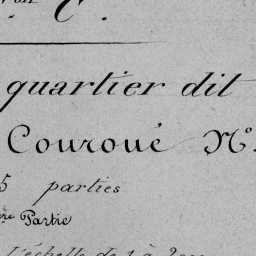 on C.
quartier dit
Couroué N°
5 parties
ère Partie
L'échelle de 1 à